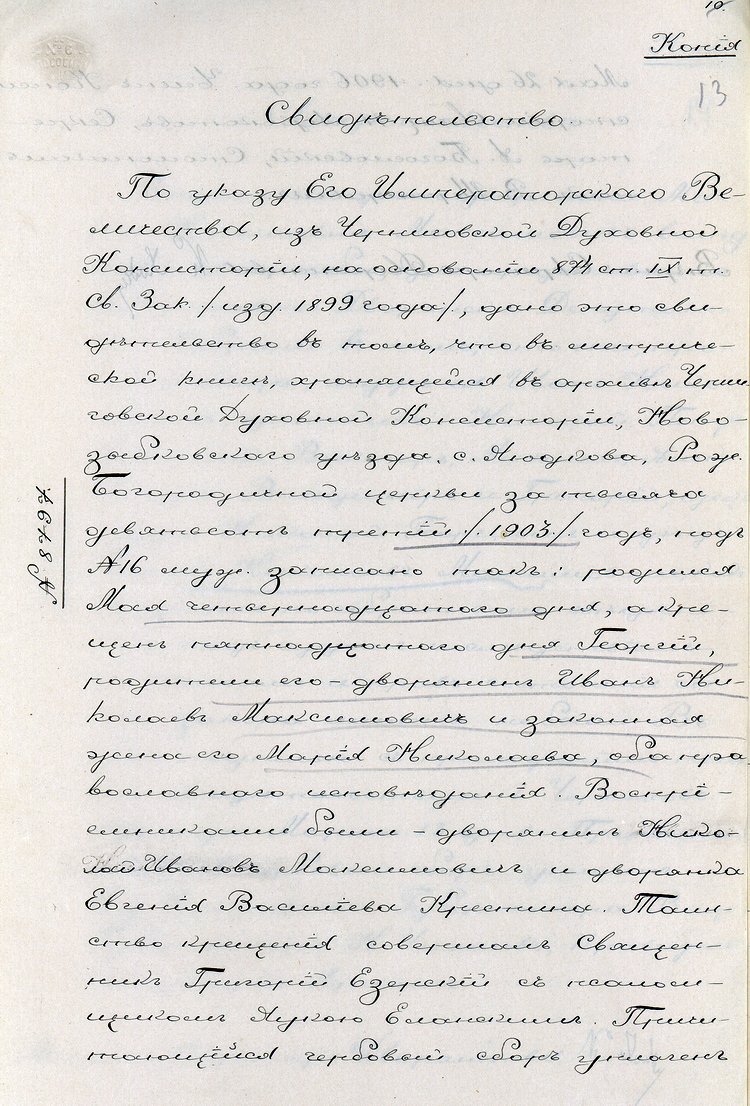 Копія
13
Свидѣтельство.
По указу Его Императорскаго Ве-
личества, изъ Черниговской Духовной
Консисторіи, на основаніи 874 ст. IX т.
Св. Зак. /изд. 1899 года/, дано это сви-
дѣтельство въ томъ, что въ метриче-
ской книгѣ, хранящейся въ архивѣ Черни-
говской Духовной Консисторіи, Ново-
зыбковскаго уѣзда, с. Людкова, Рож.
Богородичной церкви за тысяча
девятьсотъ третій /1903/ годъ, подъ
№16 муж. записано такъ: родился
Мая четырнадцатаго дня, а кре-
щенъ пятнадцатаго дня Георгій,
родители его - дворянинъ Иванъ Ни-
колаевъ Максимовичъ и законная
жена его Марія Николаева, оба пра-
вославнаго исповѣданія. Воспрі-
емниками были - дворянинъ Нико-
лай Ивановъ Максимовичъ и дворянка
Евгенія Василіева Крестина. Таин-
ство крещенія совершалъ Священ-
никъ Григорій Езерскій съ псалом-
щикомъ Лукою Еланскимъ. Причи-
тающійся гербовый сборъ уплаченъ